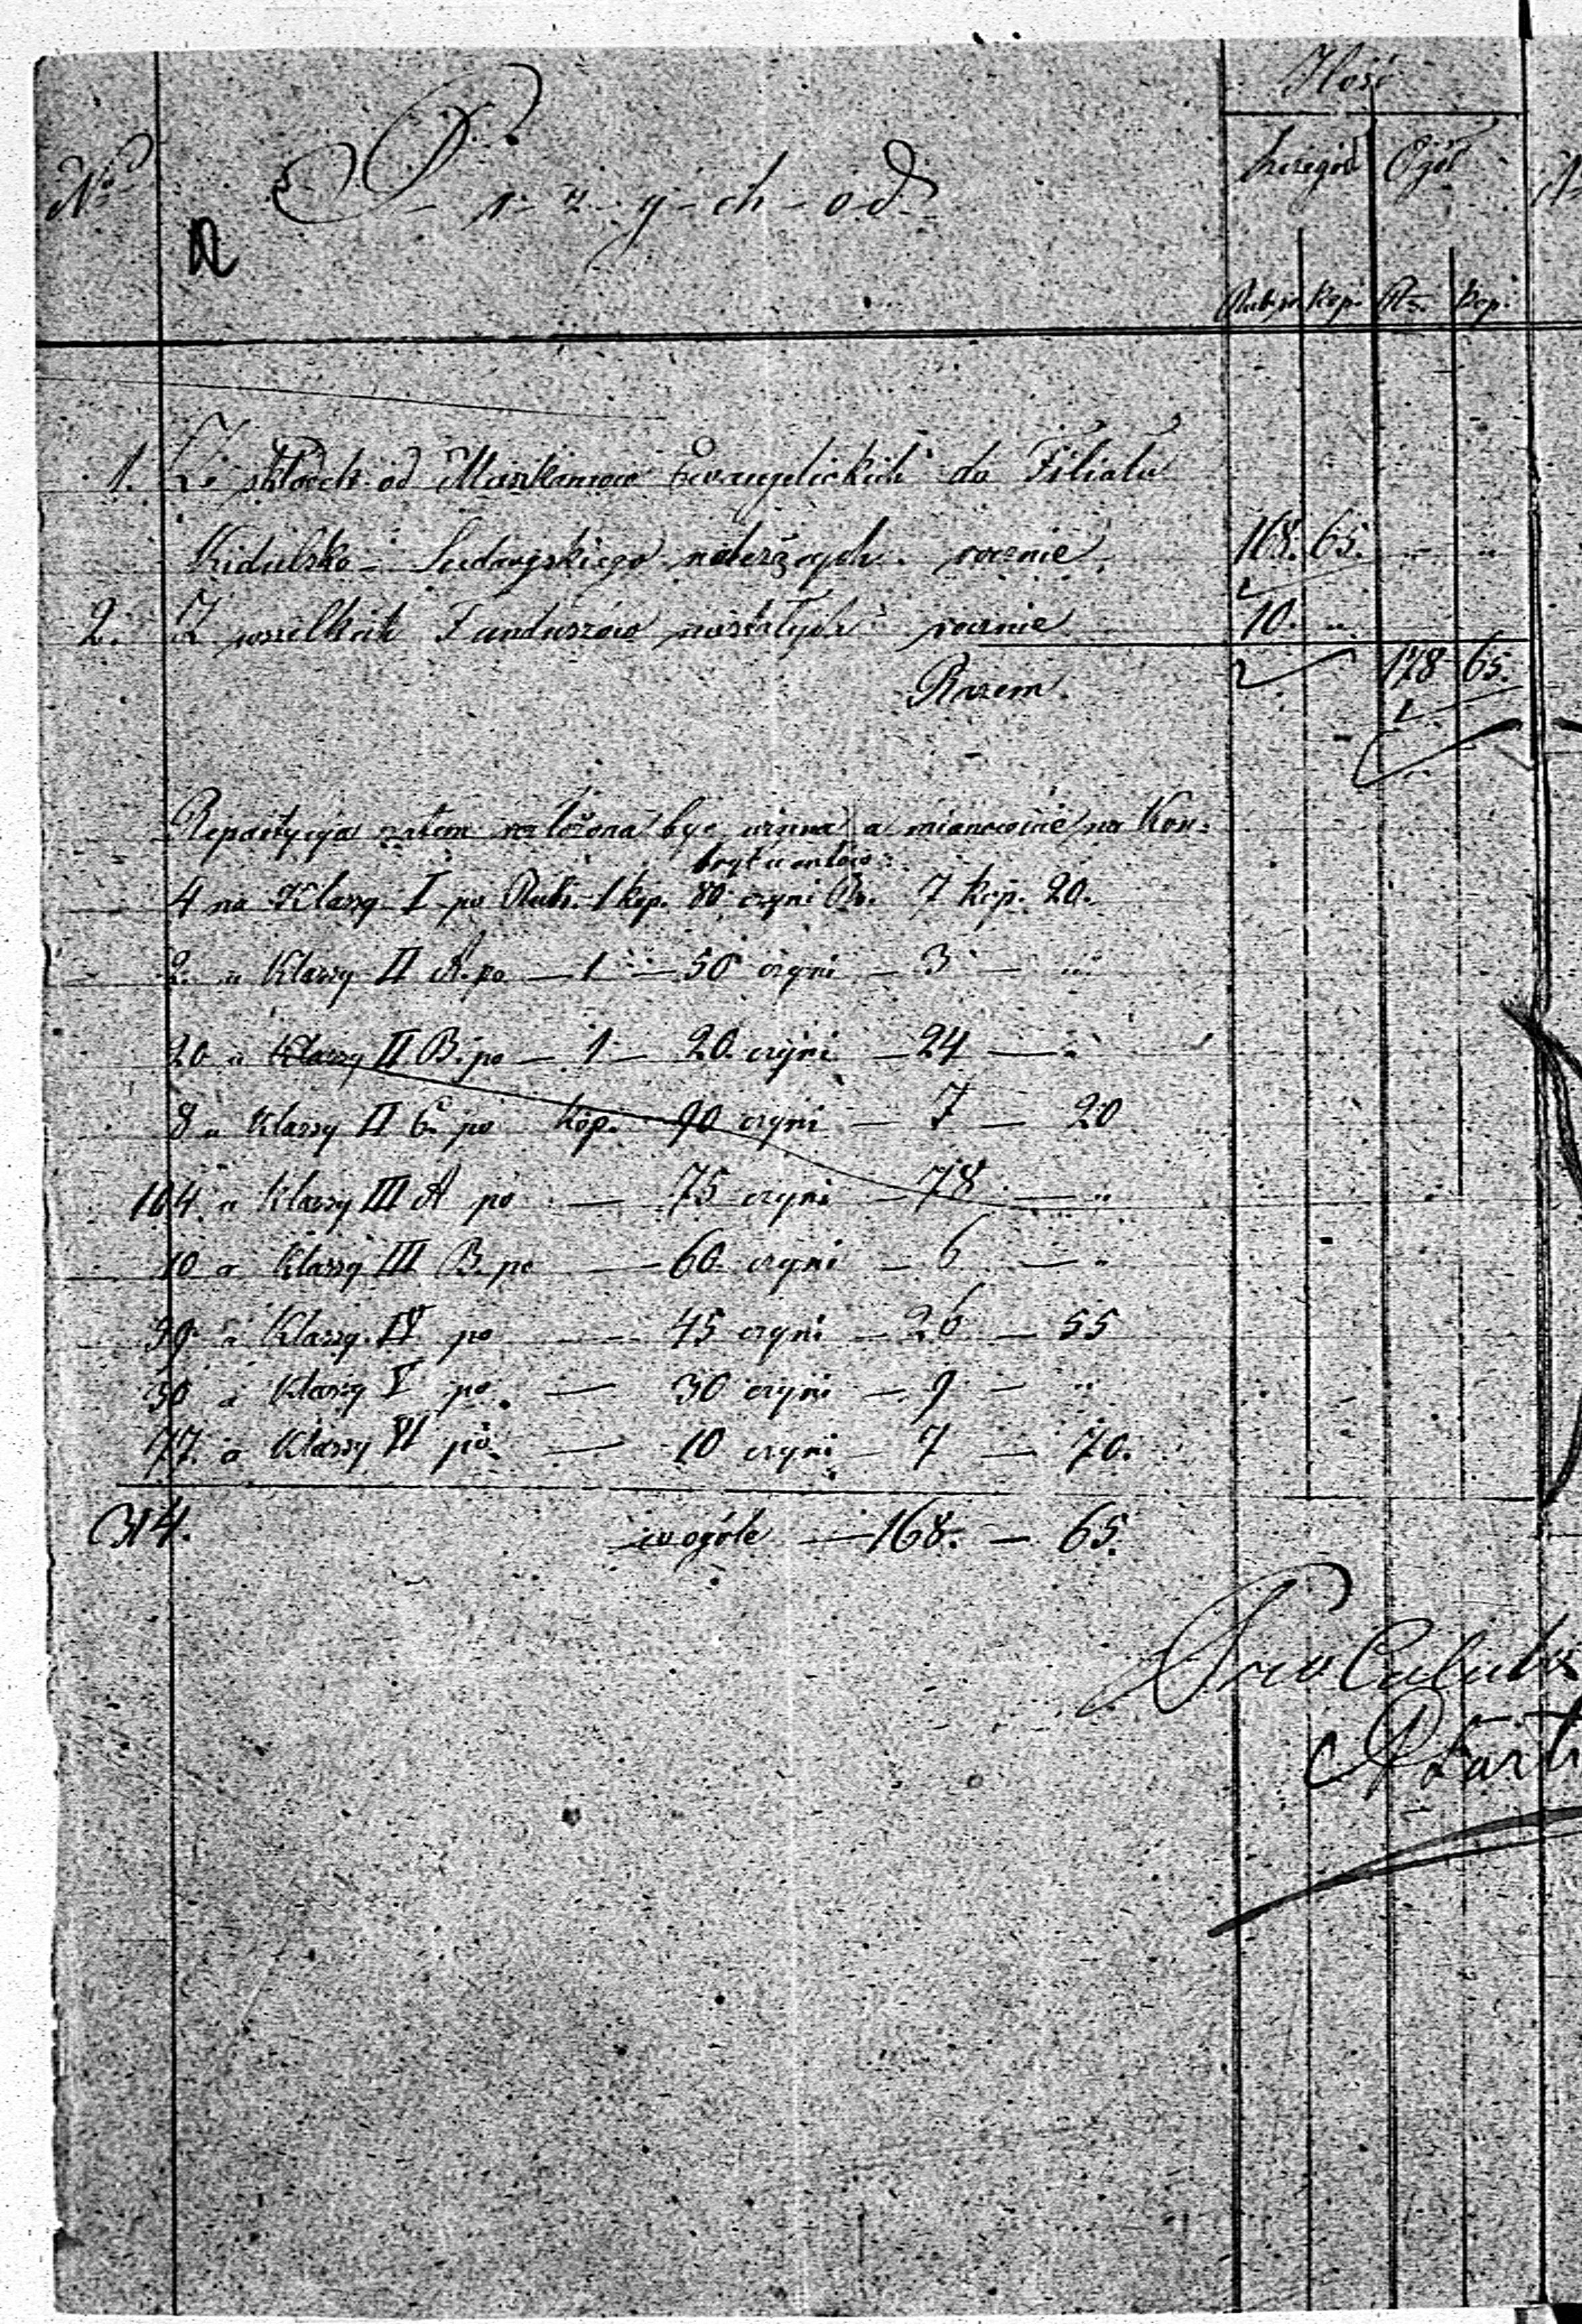 Ilość
Nº P-r-z-y-ch-o-d. Szczegół Ogół
Rub. sr. Kop. Rs. Kop.
1. Ze składek od Mieszkańców Ewangelickich do Filiału
Kidulsko-Sudargskiego należących rocznie 168. 65. „ „
2. Z wszelkich Funduszów niestałych rocznie 10. „
Razem. 178 65.
Repartycya zatem rozłożona być winna a mianowicie na Kon-
trybuentów:
4 na Klassy I po Rub. 1 kop. 80 czyni Rs. 7 kop. 20.
2. „ Klassy II A. po — 1 — 50 czyni — 3 — „
20 „ Klassy II B. po — 1 — 20. czyni — 24 — „
8 „ Klassy II C. po kop. 90 czyni — 7 — 20
104. „ Klassy III A po — 75 czyni — 78 — „
10 „ Klassy III B. po — 60 czyni — 6 — „
59 „ Klassy IV po — 45 czyni — 26 — 55
30 „ Klassy V po — 30 czyni — 9 — „
77. „ Klassy VI po — 10 czyni — 7 — 70.
314. w ogóle — 168. — 65.